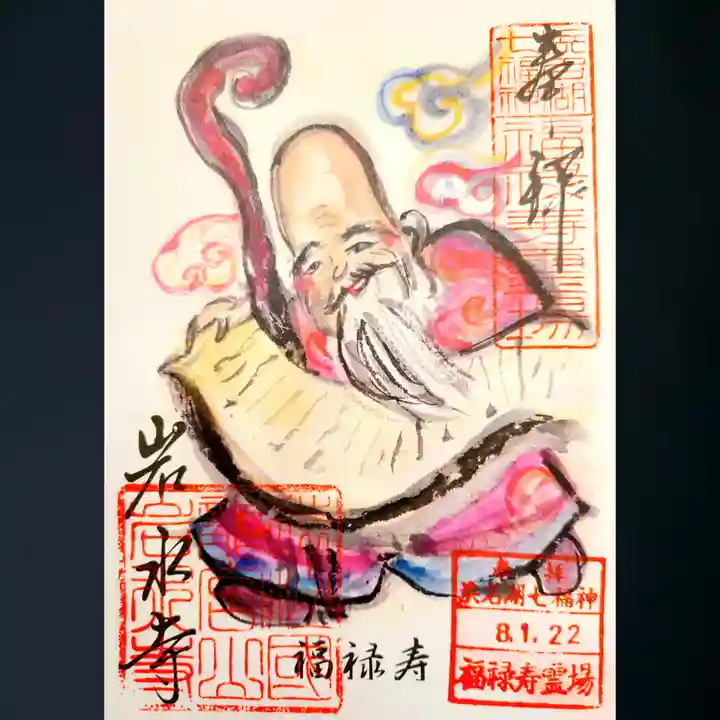 奉拝
浜名湖
七福神
福禄寿霊場
岩水寺
福禄寿
奉拝
浜名湖七福神
8.1.22
福禄寿霊場